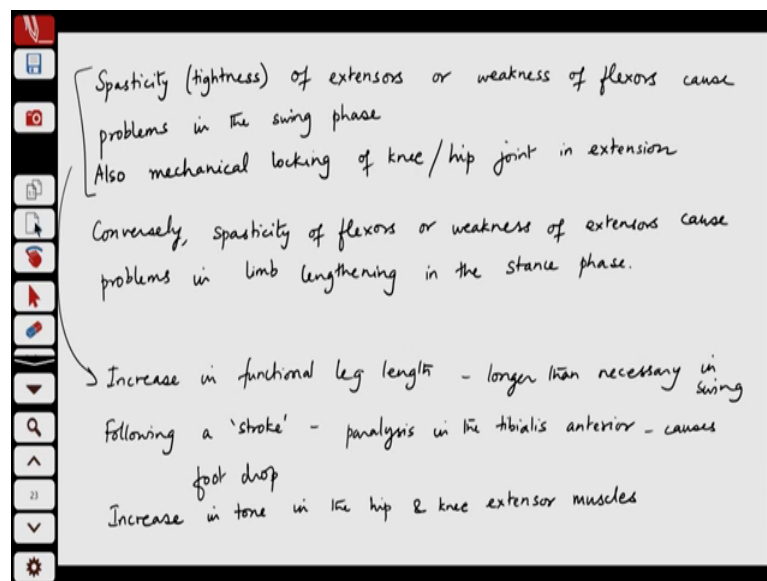 Spasticity (tightness) of extensors or weakness of flexors cause
problems in the swing phase
Also mechanical locking of knee/hip joint in extension
Conversely, spasticity of flexors or weakness of extensors cause
problems in limb lengthening in the stance phase.
Increase in functional leg length - longer than necessary in
swing
Following a 'stroke' - paralysis in the tibialis anterior - causes
foot drop
23
Increase in tone in the hip & knee extensor muscles